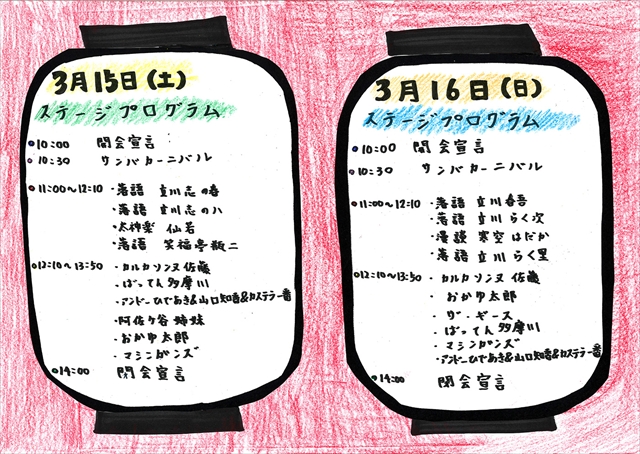 3月15日(土)
ステージプログラム
●10:00 開会宣言
●10:30 サンバカーニバル
●11:00〜12:10 ・落語 立川志の春
・落語 立川志の八
・太神楽 仙若
・落語 笑福亭瓶二
●12:10〜13:50 ・カルカソンヌ佐藤
・ばってん多摩川
・アンドーひであき&山口知香&カステラ一番
・阿佐ヶ谷姉妹
・おか甲太郎
・マシンガンズ
●14:00 閉会宣言
3月16日(日)
ステージプログラム
●10:00 開会宣言
●10:30 サンバカーニバル
●11:00〜12:10 ・落語 立川春吾
・落語 立川らく次
・漫談 寒空はだか
・落語 立川らく里
●12:10〜13:50 ・カルカソンヌ佐藤
・おか甲太郎
・ザ・ギース
・ばってん多摩川
・マシンガンズ
・アンドーひであき&山口知香&カステラ一番
●14:00 閉会宣言